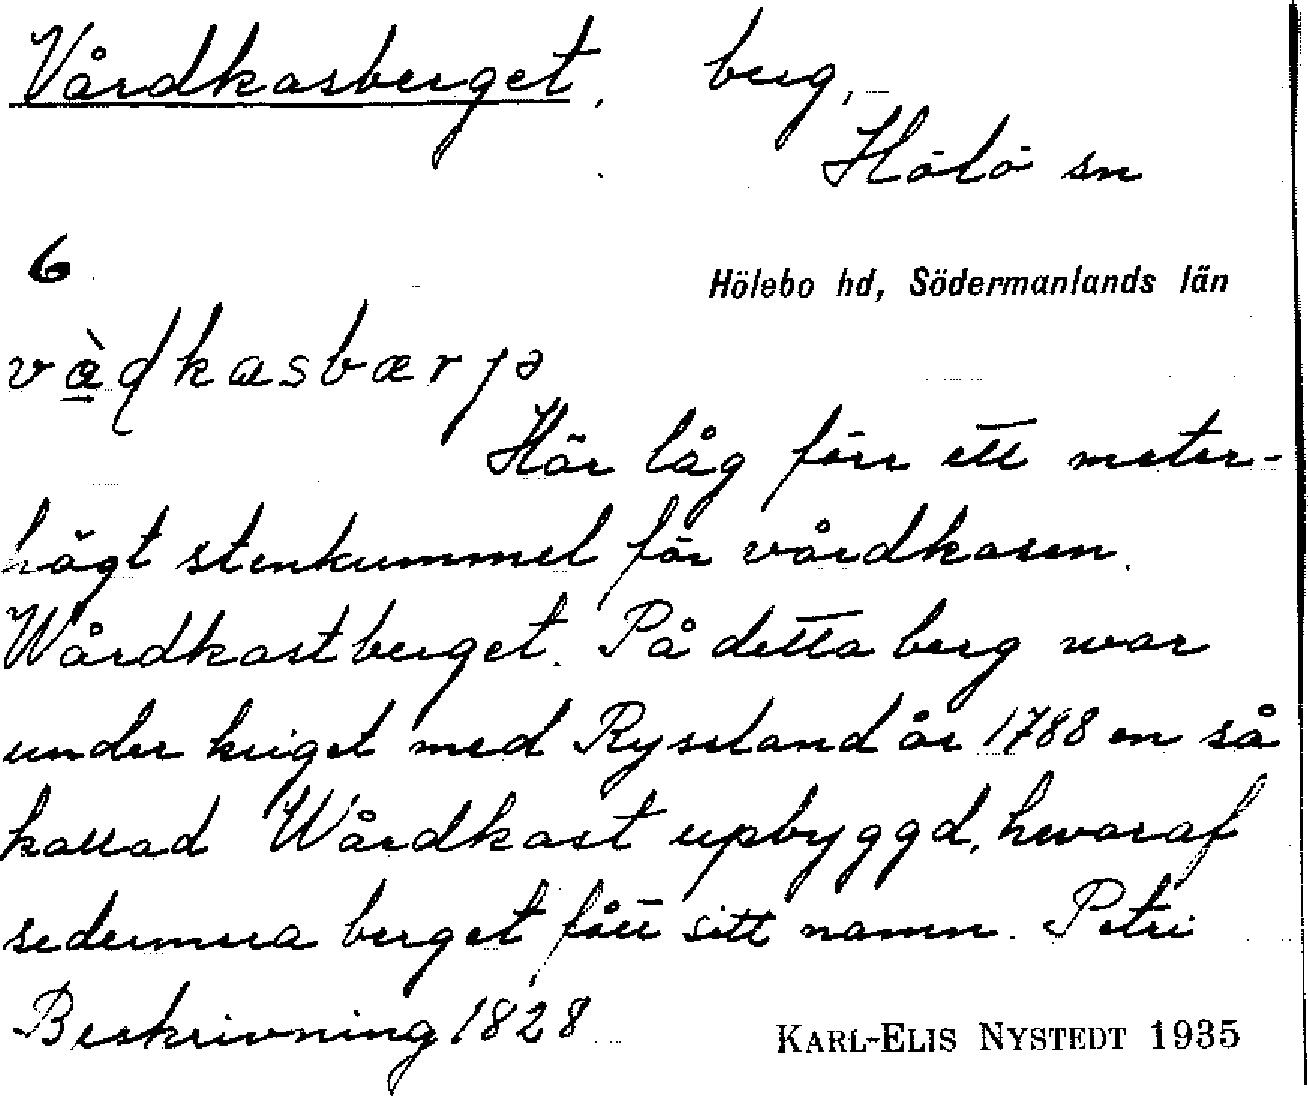 Vårdkasberget, berg,
Hölö sn
6
Hölebo hd, Södermanlands län
Här låg förr ett meter-
högt stenkummel för vårdkasen.
Wårdkastberget. På detta berg war
under kriget med Ryssland år 1788 en så
kallad Wårdkast upbyggd, hvaraf
sedermera berget fått sitt namn. Petri
Beskrivning 1828
KARL-ELIS NYSTEDT 1935